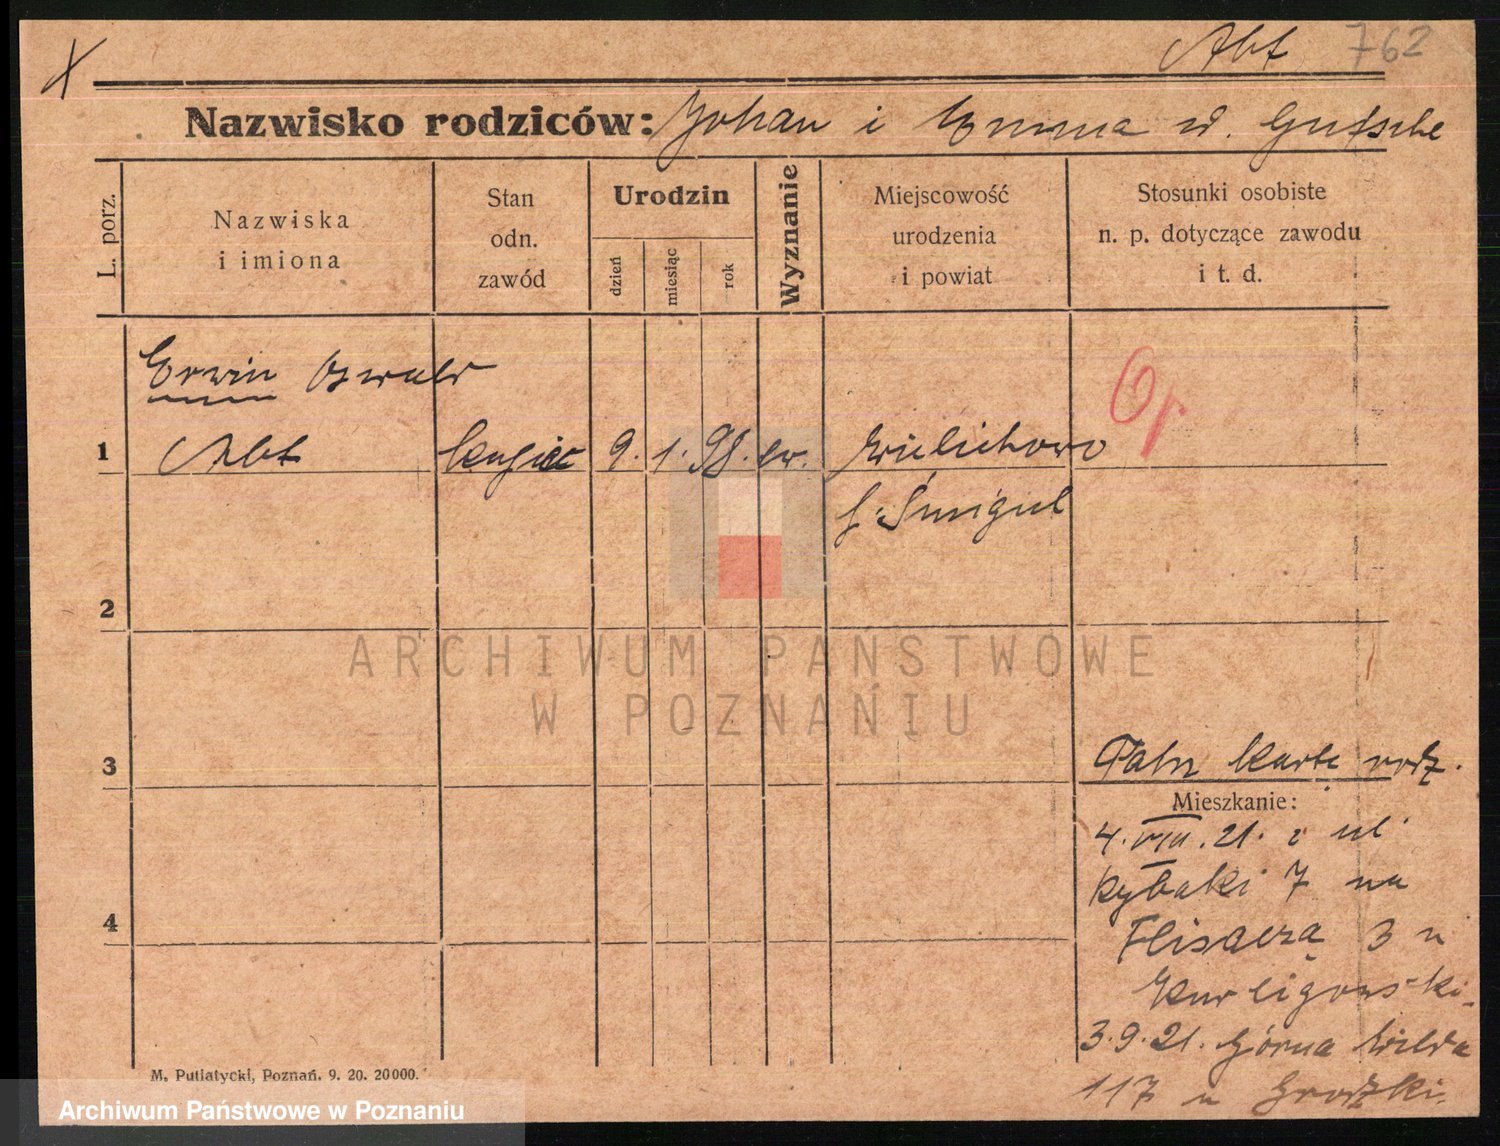 Abt 762
Nazwisko rodziców: Johan i Emma ur. Gutsche
L. porz.
Nazwiska
i imiona
Stan
odn.
zawód
Urodzin
dzień
miesiąc
rok
Wyznanie
Miejscowość
urodzenia
i powiat
Stosunki osobiste
n. p. dotyczące zawodu
i t. d.
Erwin Oswald
1 Abt kupiec 9. 1. 98. ew. Wielichowo
Śmigiel
2
ARCHIWUM PAŃSTWOWE
W POZNANIU
3 karta rodz.
Mieszkanie:
4. VIII. 21. z ul
Rybaki 7 na
4 Flisaczą 3 u
3.9.21. Górna Wilda
117 u Grodzki.
M. Putiatycki, Poznań. 9. 20. 20000.
Archiwum Państwowe w Poznaniu